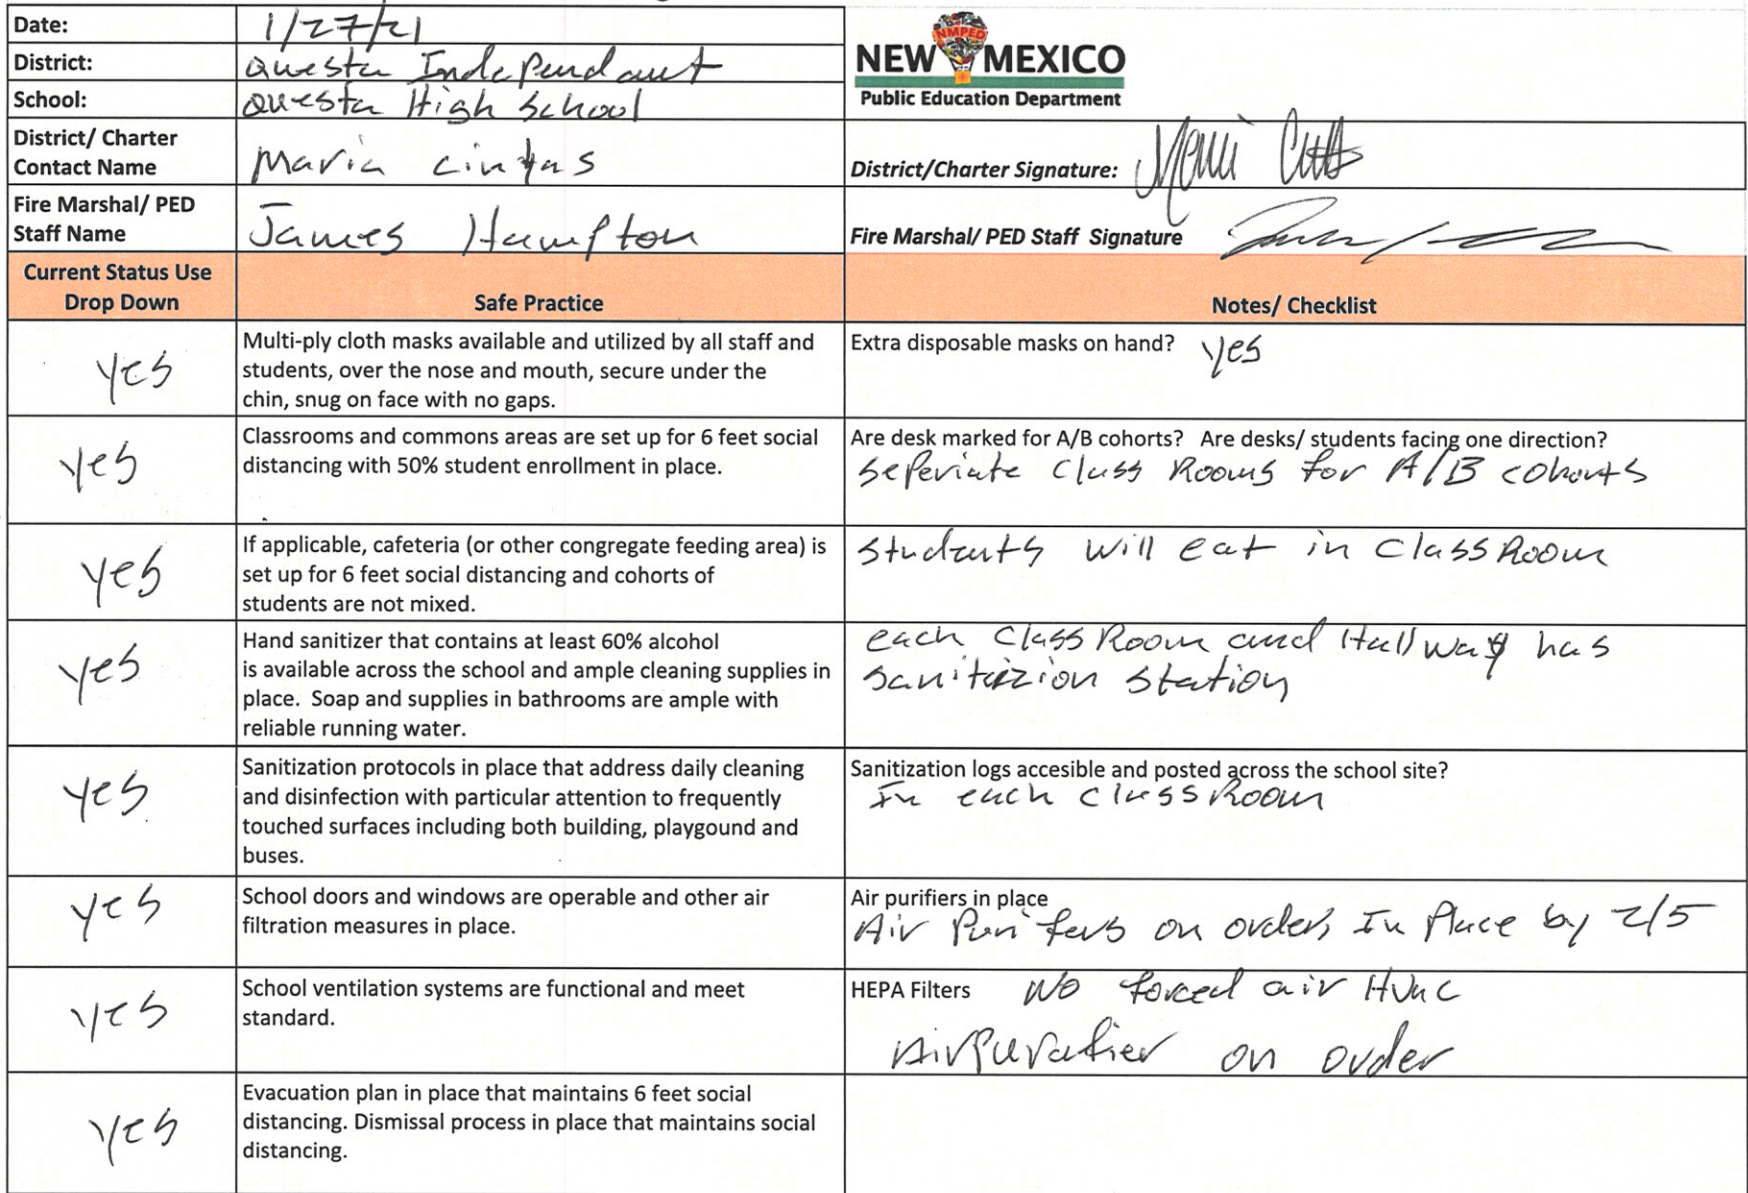 Date: 1/27/21
District: Questa Independant
School: Questa High School
NMPED
NEW MEXICO
Public Education Department
District/ Charter
Contact Name
Maria Cintas
District/Charter Signature:
Fire Marshal/ PED
Staff Name
James Hampton
Fire Marshal/ PED Staff Signature
Current Status Use
Drop Down
Safe Practice
Notes/ Checklist
yes
Multi-ply cloth masks available and utilized by all staff and
students, over the nose and mouth, secure under the
chin, snug on face with no gaps.
Extra disposable masks on hand? yes
yes
Classrooms and commons areas are set up for 6 feet social
distancing with 50% student enrollment in place.
Are desk marked for A/B cohorts? Are desks/ students facing one direction?
Seperiate Class Rooms for A/B cohorts
yes
If applicable, cafeteria (or other congregate feeding area) is
set up for 6 feet social distancing and cohorts of
students are not mixed.
Students will eat in Class Room
yes
Hand sanitizer that contains at least 60% alcohol
is available across the school and ample cleaning supplies in
place. Soap and supplies in bathrooms are ample with
reliable running water.
each Class Room and Hallway has
Sanitizion Station
yes
Sanitization protocols in place that address daily cleaning
and disinfection with particular attention to frequently
touched surfaces including both building, playgound and
buses.
Sanitization logs accesible and posted across the school site?
In each Class Room
yes
School doors and windows are operable and other air
filtration measures in place.
Air purifiers in place
Air Purifers on order, In Place by 2/5
yes
School ventilation systems are functional and meet
standard.
HEPA Filters No forced air HVAC
Airpuratier on order
yes
Evacuation plan in place that maintains 6 feet social
distancing. Dismissal process in place that maintains social
distancing.